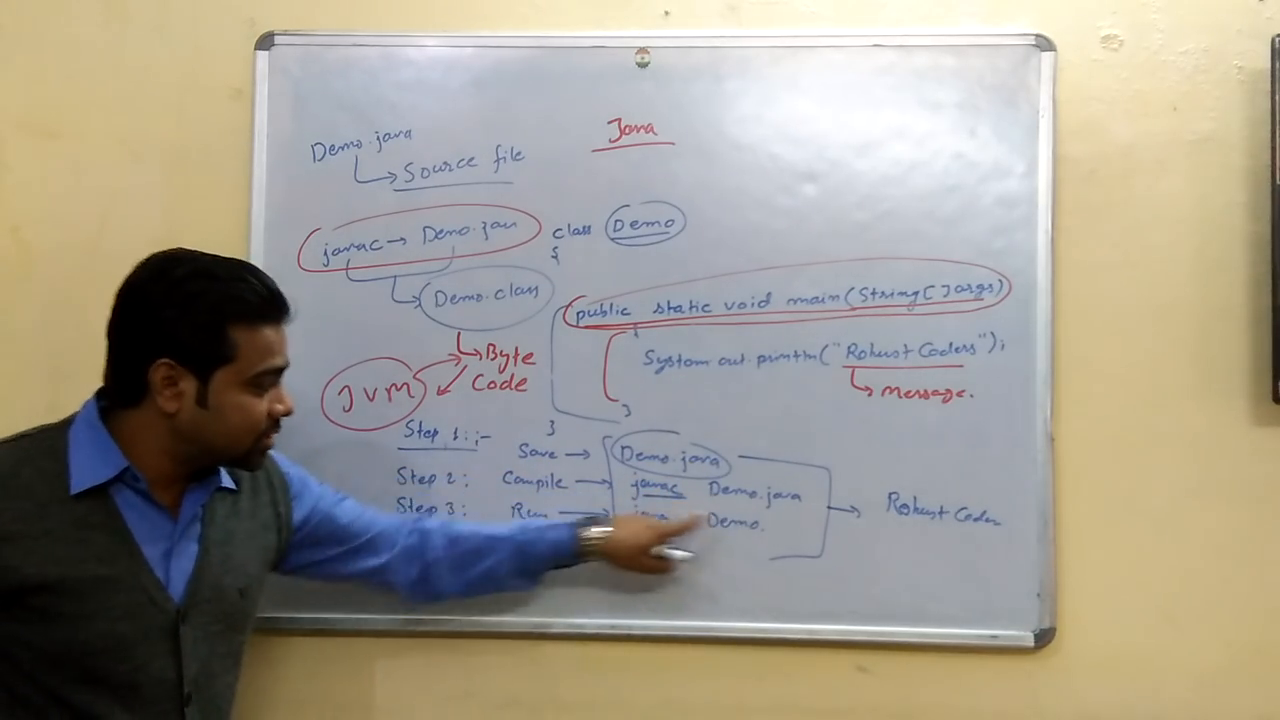 Java
Demo.java
Source file
javac → Demo.java
Demo.class
Byte
Code
JVM
class Demo
{
public static void main(String[]args)
{
System.out.println("Robust Coders");
message.
}
}
Step 1:- Save → Demo.java
Step 2: Compile → javac Demo.java
Step 3: Run → java Demo.
Robust Coders